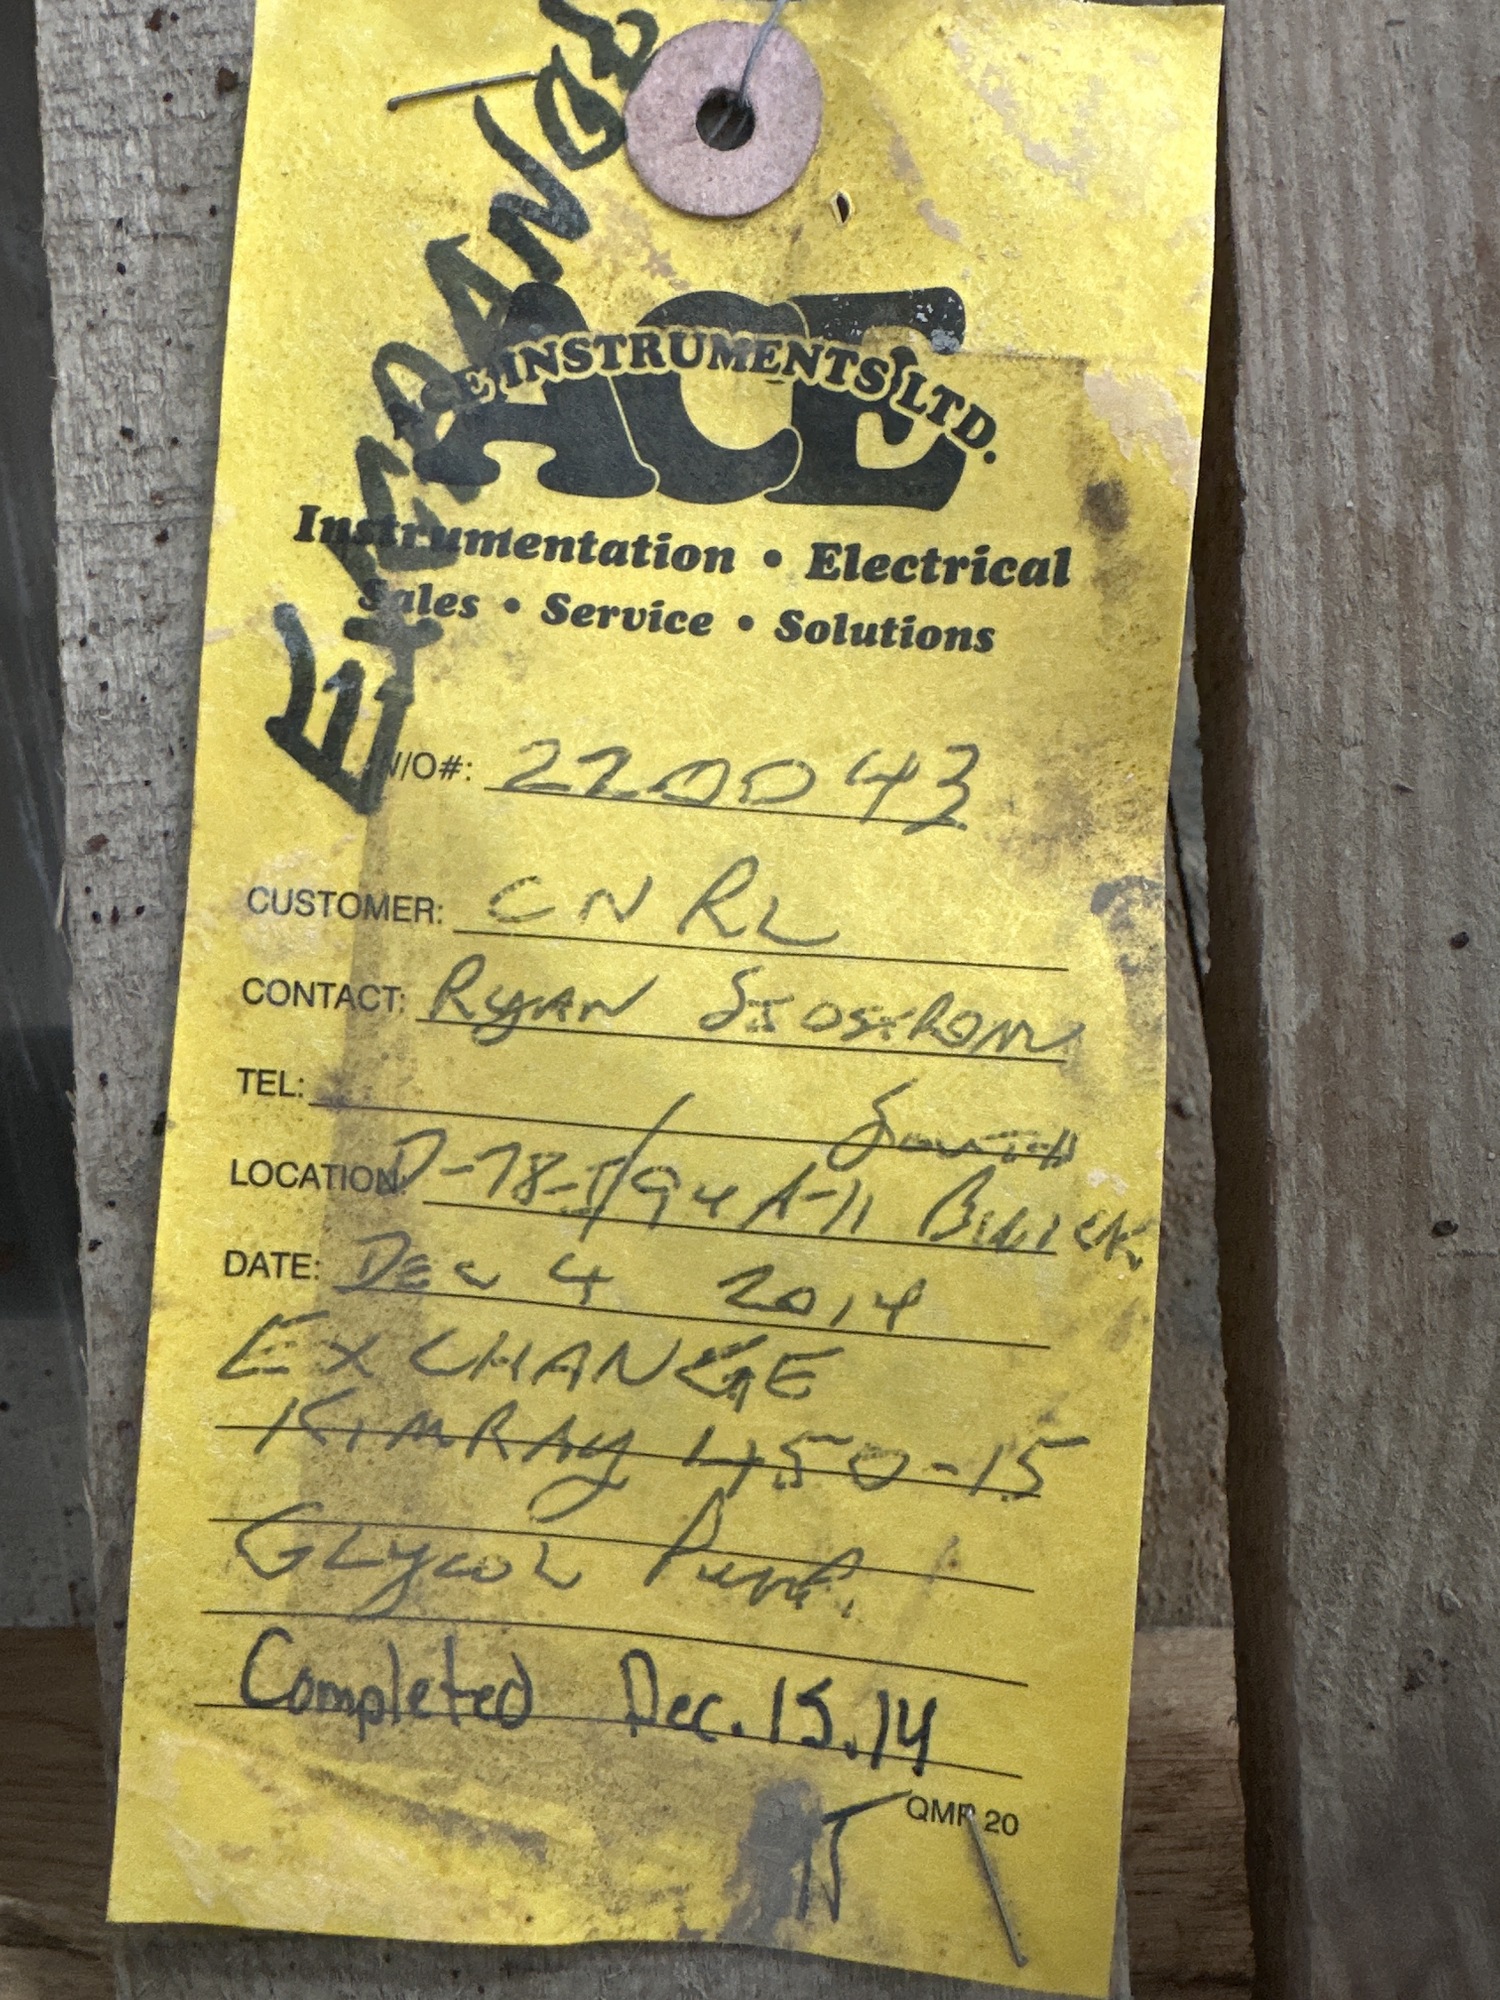 ACE
ACE INSTRUMENTS LTD.
Instrumentation • Electrical
Sales • Service • Solutions
W/O#: 220043
CUSTOMER: CNRL
CONTACT: RYAN SJOSTROM
TEL:
SOUTH
LOCATION: D-78-I/94 A-11 BUICK
DATE: DEC 4 2014
EXCHANGE
KIMRAY 450-15
GLYCOL PUMP.
Completed Dec. 15.14
QMP 20